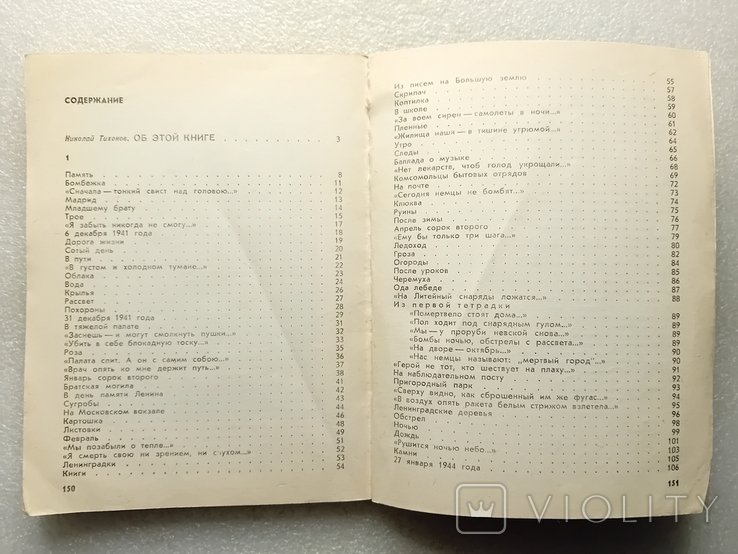 СОДЕРЖАНИЕ
Николай Тихонов. ОБ ЭТОЙ КНИГЕ 3
1
Память 8
Бомбежка 11
«Сначала — тонкий свист над головою...» 12
Мадрид 13
Младшему брату 14
Трое 15
«Я забыть никогда не смогу...» 17
6 декабря 1941 года 18
Дорога жизни 19
Сотый день 20
В пути 21
«В густом и холодном тумане...»
Облака 22
Вода 24
Крылья
Рассвет 28
Похороны 29
31 декабря 1941 года
В тяжелой палате 31
«Заснешь — и могут смолкнуть пушки...» 33
«Убить в себе блокадную тоску...» 34
Роза 35
«Палата спит. А он с самим собою...» 36
«Врач опять ко мне держит путь...» 37
Январь сорок второго 38
Братская могила 40
В день памяти Ленина 41
Сугробы 42
На Московском вокзале 43
Картошка 44
Листовки
Февраль
«Мы позабыли о тепле...» 51
«Я смерть свою ни зрением, ни слухом...» 52
Ленинградки 53
Книги 54
150
Из писем на Большую землю 55
Скрипач 57
Коптилка 58
В школе 59
«За воем сирен — самолеты в ночи...» 60
Пленные 61
«Жилища наши — в тишине угрюмой...» 62
Утро 64
Следы 65
Баллада о музыке 66
«Нет лекарств, чтоб голод укрощали...» 68
Комсомольцы бытовых отрядов 70
На почте 72
«Сегодня немцы не бомбят...» 73
Клюква 74
Руины 75
После зимы 76
Апрель сорок второго 77
«Ему бы только три шага...» 79
Ледоход 80
Гроза 82
Огороды 84
После уроков
Черемуха
Ода лебеде 87
«На Литейный снаряды ложатся...» 88
Из первой тетрадки
«Помертвело стоят дома...» 89
«Пол ходит под снарядным гулом...» 89
«Мы — у проруби невской снова...» 89
«Бомбы ночью, обстрелы с рассвета...» 90
«На дворе — октябрь...» 90
«Нас немцы называют: „мертвый город“...» 90
«Герой не тот, кто шествует на плаху...» 91
На наблюдательном посту 92
Пригородный парк 93
«Сверху видно, как сброшенный им же фугас...» 94
«В воздух опять ракета белым стрижом взлетела...» 95
Ленинградские деревья 96
Обстрел 97
Ночью 99
Дождь 101
«Рушится ночью небо...» 103
Камни 105
27 января 1944 года 106
151
VIOLITY